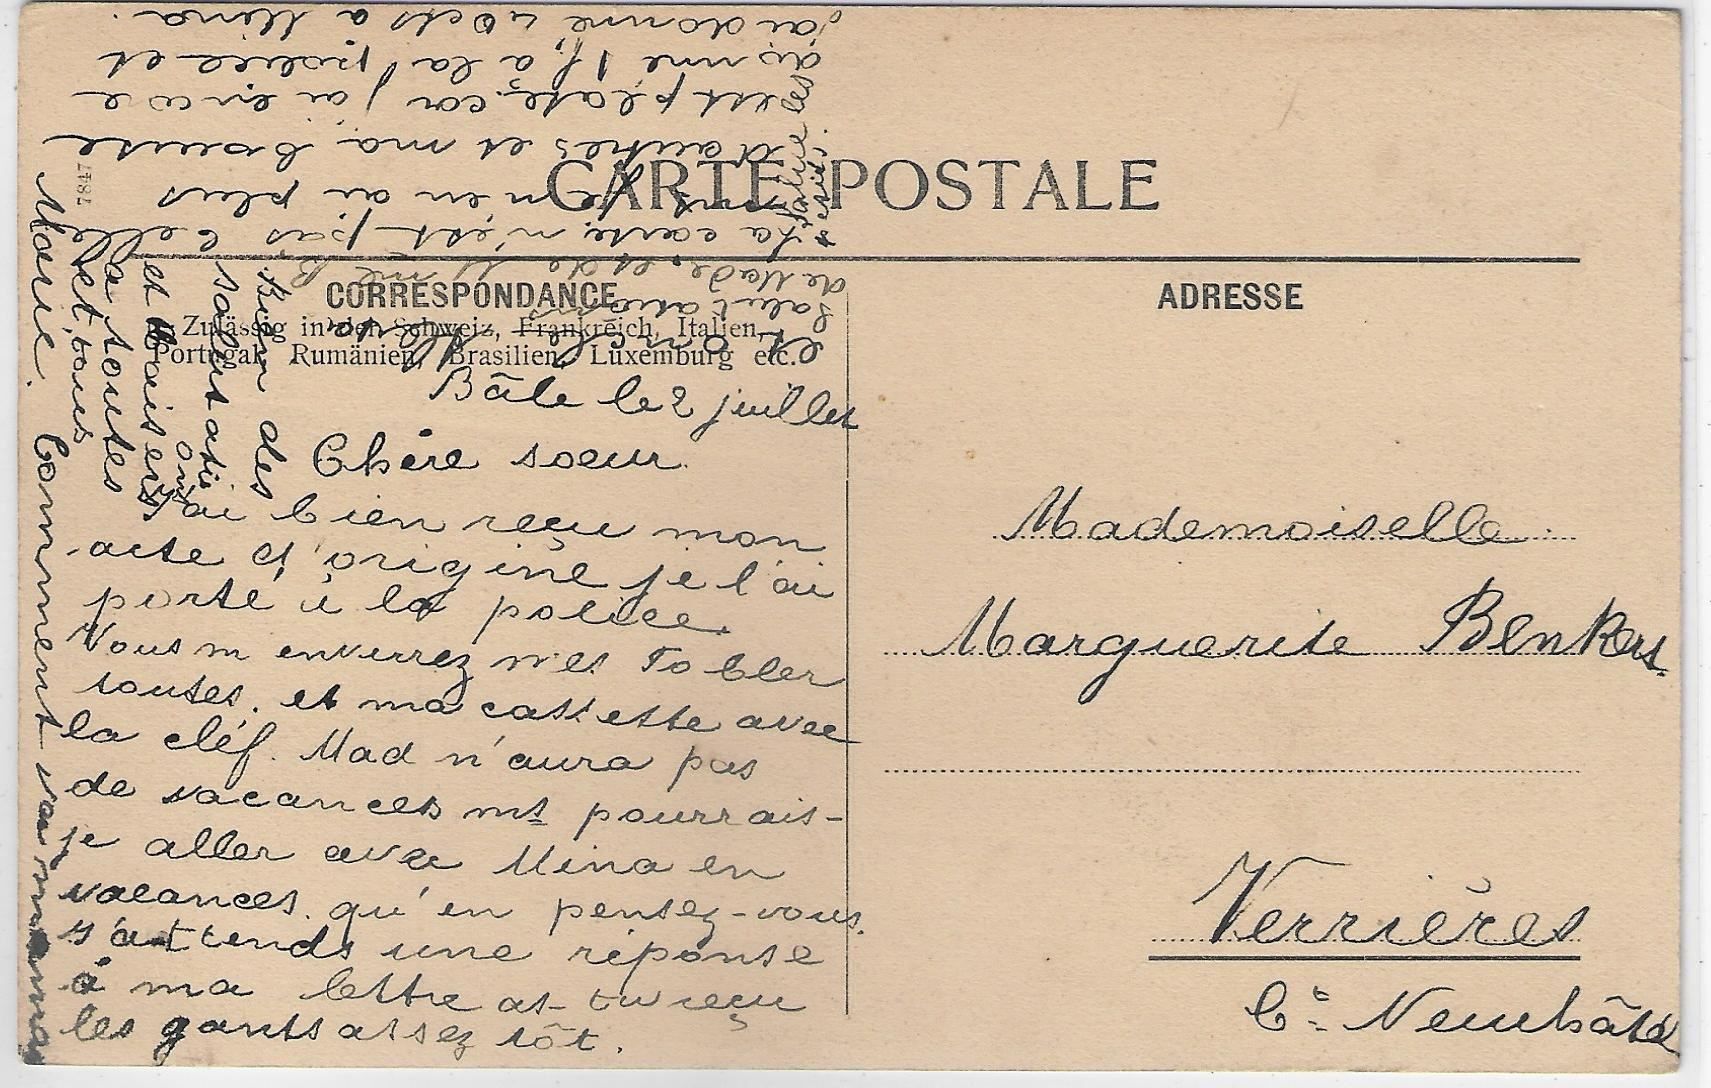 CARTE POSTALE
CORRESPONDANCE
Zulässig in der Schweiz, Frankreich, Italien,
Portugal, Rumänien, Brasilien, Luxemburg etc.
ADRESSE
Bâle le 2 juillet
Chère soeur.
J'ai bien reçu mon
acte d'origine je l'ai
porté à la police.
Vous m'enverrez mes Tobler
toutes. et ma cassette avec
la cléf. Mad n'aura pas
de vacances mt pourrais-
je aller avec Mina en
vacances. qu'en pensez-vous.
J'attends une réponse
à ma lettre as-tu reçu
les gants assez tôt.
Comment va maman
Bien des
salutations
et baisers
à toutes
et tous
Marie.
et
salutations
de Mad. et de Mme B.
* La carte n'est pas belle
je n'en ai plus
d'autres et ma bourse
est plate, car j'ai encore
donné 1 f. à la police et
j'ai donné 40 cts à Mina.
Mademoiselle
Marguerite Benkert
Verrières
Ct: Neuchâtel
7487